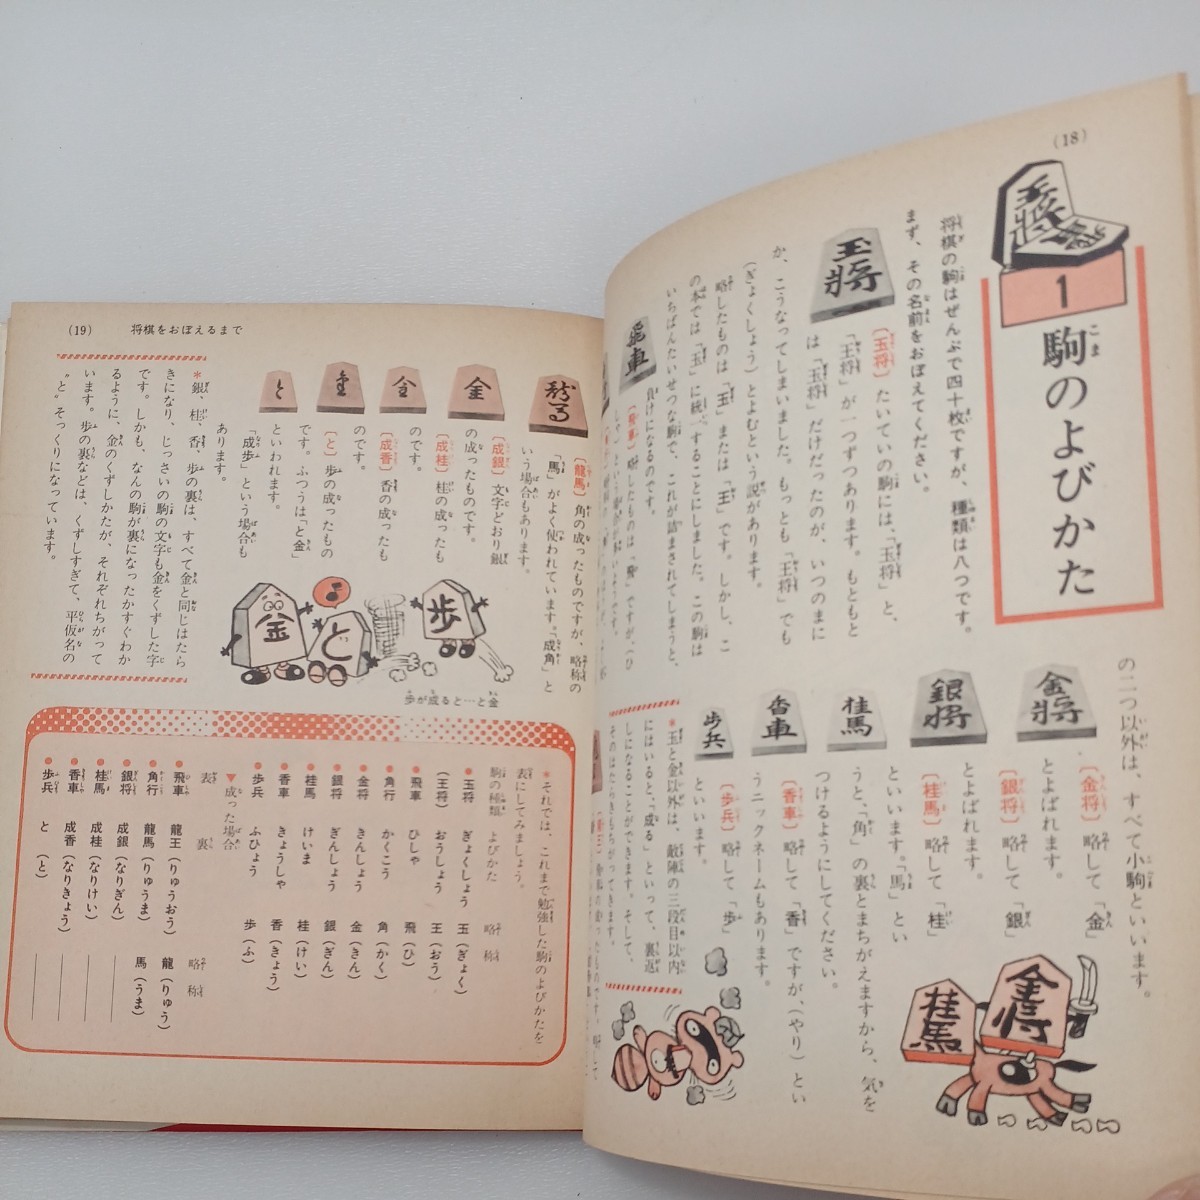 (18)
1
駒のよびかた
将棋の駒はぜんぶで四十枚ですが、種類は八つです。
まず、その名前をおぼえてください。
玉将
〔玉将〕たいていの駒には、「玉将」と、
「王将」が一つずつあります。もともと
は「玉将」だけだったのが、いつのまに
か、こうなってしまいました。もっとも「王将」でも
(ぎょくしょう)とよむという説があります。
略したものは「玉」または「王」です。しかし、こ
の本では「玉」に統一することにしました。この駒は
いちばんたいせつな駒で、これが詰まされてしまうと、
負けになるのです。
飛車
〔飛車〕略したものは「飛」ですが、(ひ
の二つ以外は、すべて小駒といいます。
金将
〔金将〕略して「金」
とよばれます。
銀将
〔銀将〕略して「銀」
とよばれます。
桂馬
〔桂馬〕略して「桂」
といいます。「馬」とい
うと、「角」の裏とまちがえますから、気を
つけるようにしてください。
香車
〔香車〕略して「香」ですが、(やり)とい
うニックネームもあります。
歩兵
〔歩兵〕略して「歩」
といいます。
*玉と金以外は、敵陣の三段目以内
にはいると、「成る」といって、裏返
しになることができます。そして、
そのはたらきもちがってきます。
金将
桂馬
(19) 将棋をおぼえるまで
龍馬
〔龍馬〕角の成ったものですが、略称の
「馬」がよく使われています。「成角」と
いう場合もあります。
〔成銀〕文字どおり銀
の成ったものです。
〔成桂〕桂の成ったも
のです。
〔成香〕香の成ったも
のです。
と
〔と〕歩の成ったもの
です。ふつうは「と金」
といわれます。
「成歩」という場合も
あります。
*銀、桂、香、歩の裏は、すべて金と同じはたら
きになり、じっさいの駒の文字も金をくずした字
です。しかも、なんの駒が裏になったかすぐわか
るように、金のくずしかたが、それぞれちがって
います。歩の裏などは、くずしすぎて、平仮名の
〝と〟そっくりになっています。
歩
と
金
歩が成ると…と金
*それでは、これまで勉強した駒のよびかたを
表にしてみましょう。
駒の種類 よびかた 略称
●玉将 ぎょくしょう 玉(ぎょく)
(王将) おうしょう 王(おう)
●飛車 ひしゃ 飛(ひ)
●角行 かくこう 角(かく)
●金将 きんしょう 金(きん)
●銀将 ぎんしょう 銀(ぎん)
●桂馬 けいま 桂(けい)
●香車 きょうしゃ 香(きょう)
●歩兵 ふひょう 歩(ふ)
▼成った場合
表 裏 略称
●飛車 龍王(りゅうおう) 龍(りゅう)
●角行 龍馬(りゅうま) 馬(うま)
●銀将 成銀(なりぎん)
●桂馬 成桂(なりけい)
●香車 成香(なりきょう)
●歩兵 と(と)